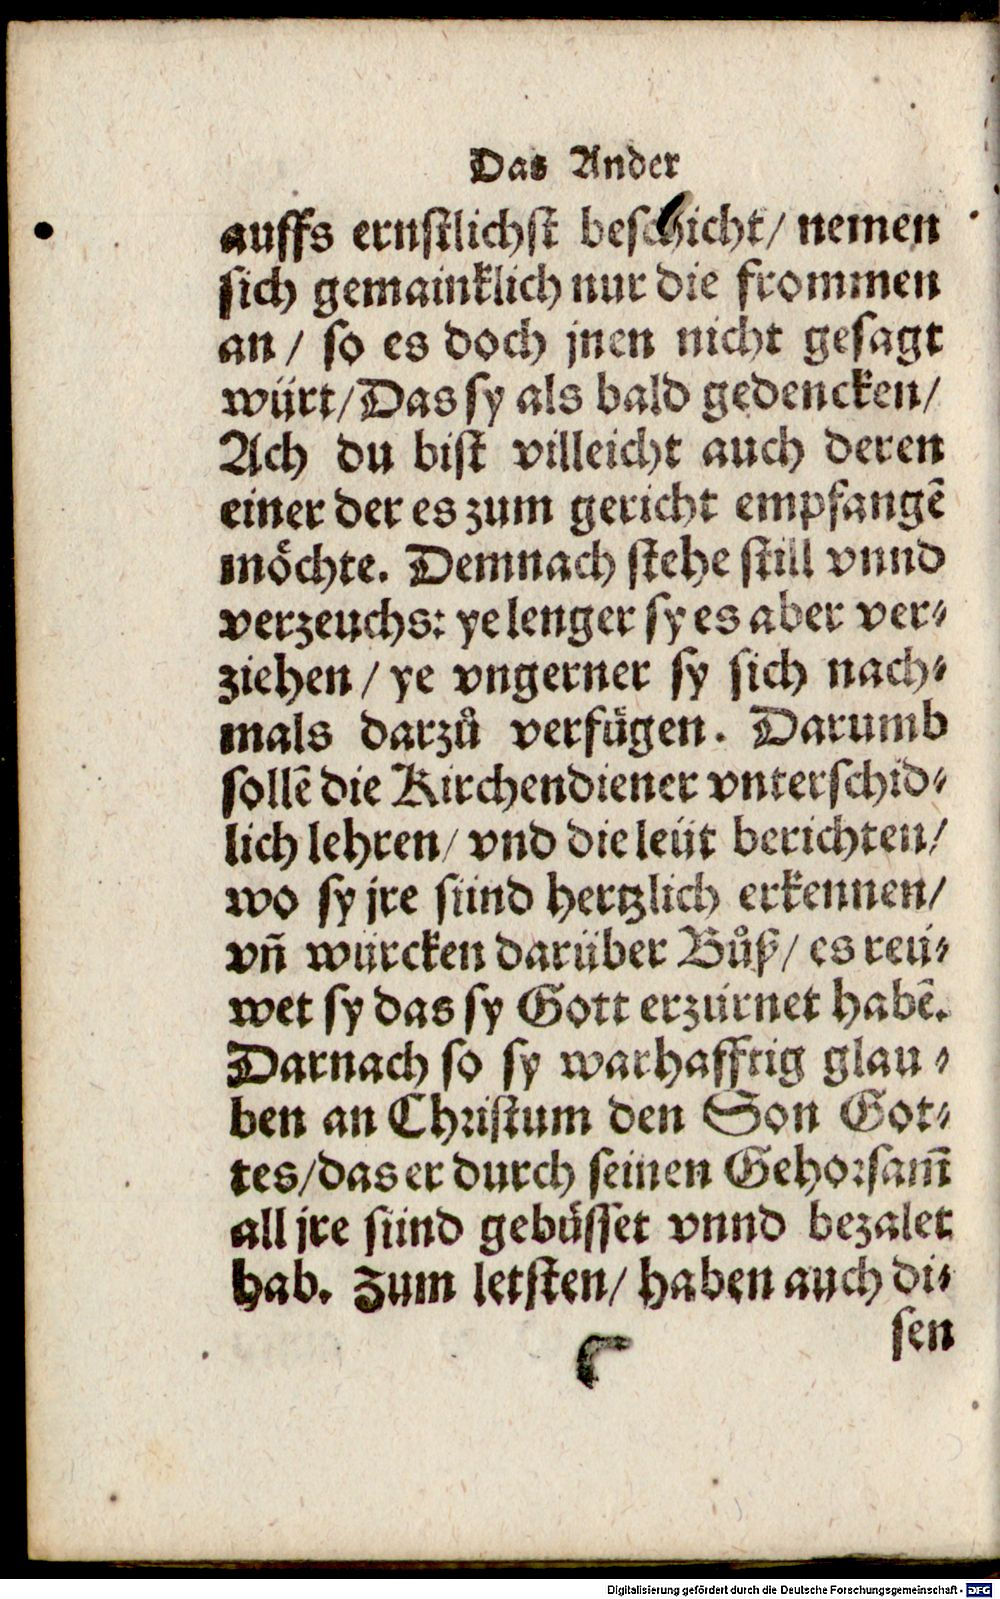 Das Ander
auffs ernstlichst beschicht/ nemen
sich gemainklich nur die frommen
an/ so es doch jnen nicht gesagt
würt/ Das sy als bald gedencken/
Ach du bist villeicht auch deren
einer der es zum gericht empfangē
möchte. Demnach stehe still vnnd
verzeuchs: ye lenger sy es aber ver⸗
ziehen/ ye vngerner sy sich nach⸗
mals darzů verfügen. Darumb
sollē die Kirchendiener vnterschid⸗
lich lehren/ vnd die leüt berichten/
wo sy jre sünd hertzlich erkennen/
vñ würcken darüber Bůß/ es reü⸗
wet sy das sy Gott erzürnet habē.
Darnach so sy warhafftig glau⸗
ben an Christum den Son Got⸗
tes/ das er durch seinen Gehorsam̄
all jre sünd gebüsset vnnd bezalet
hab. Zum letsten/ haben auch di⸗
sen
Digitalisierung gefördert durch die Deutsche Forschungsgemeinschaft - DFG